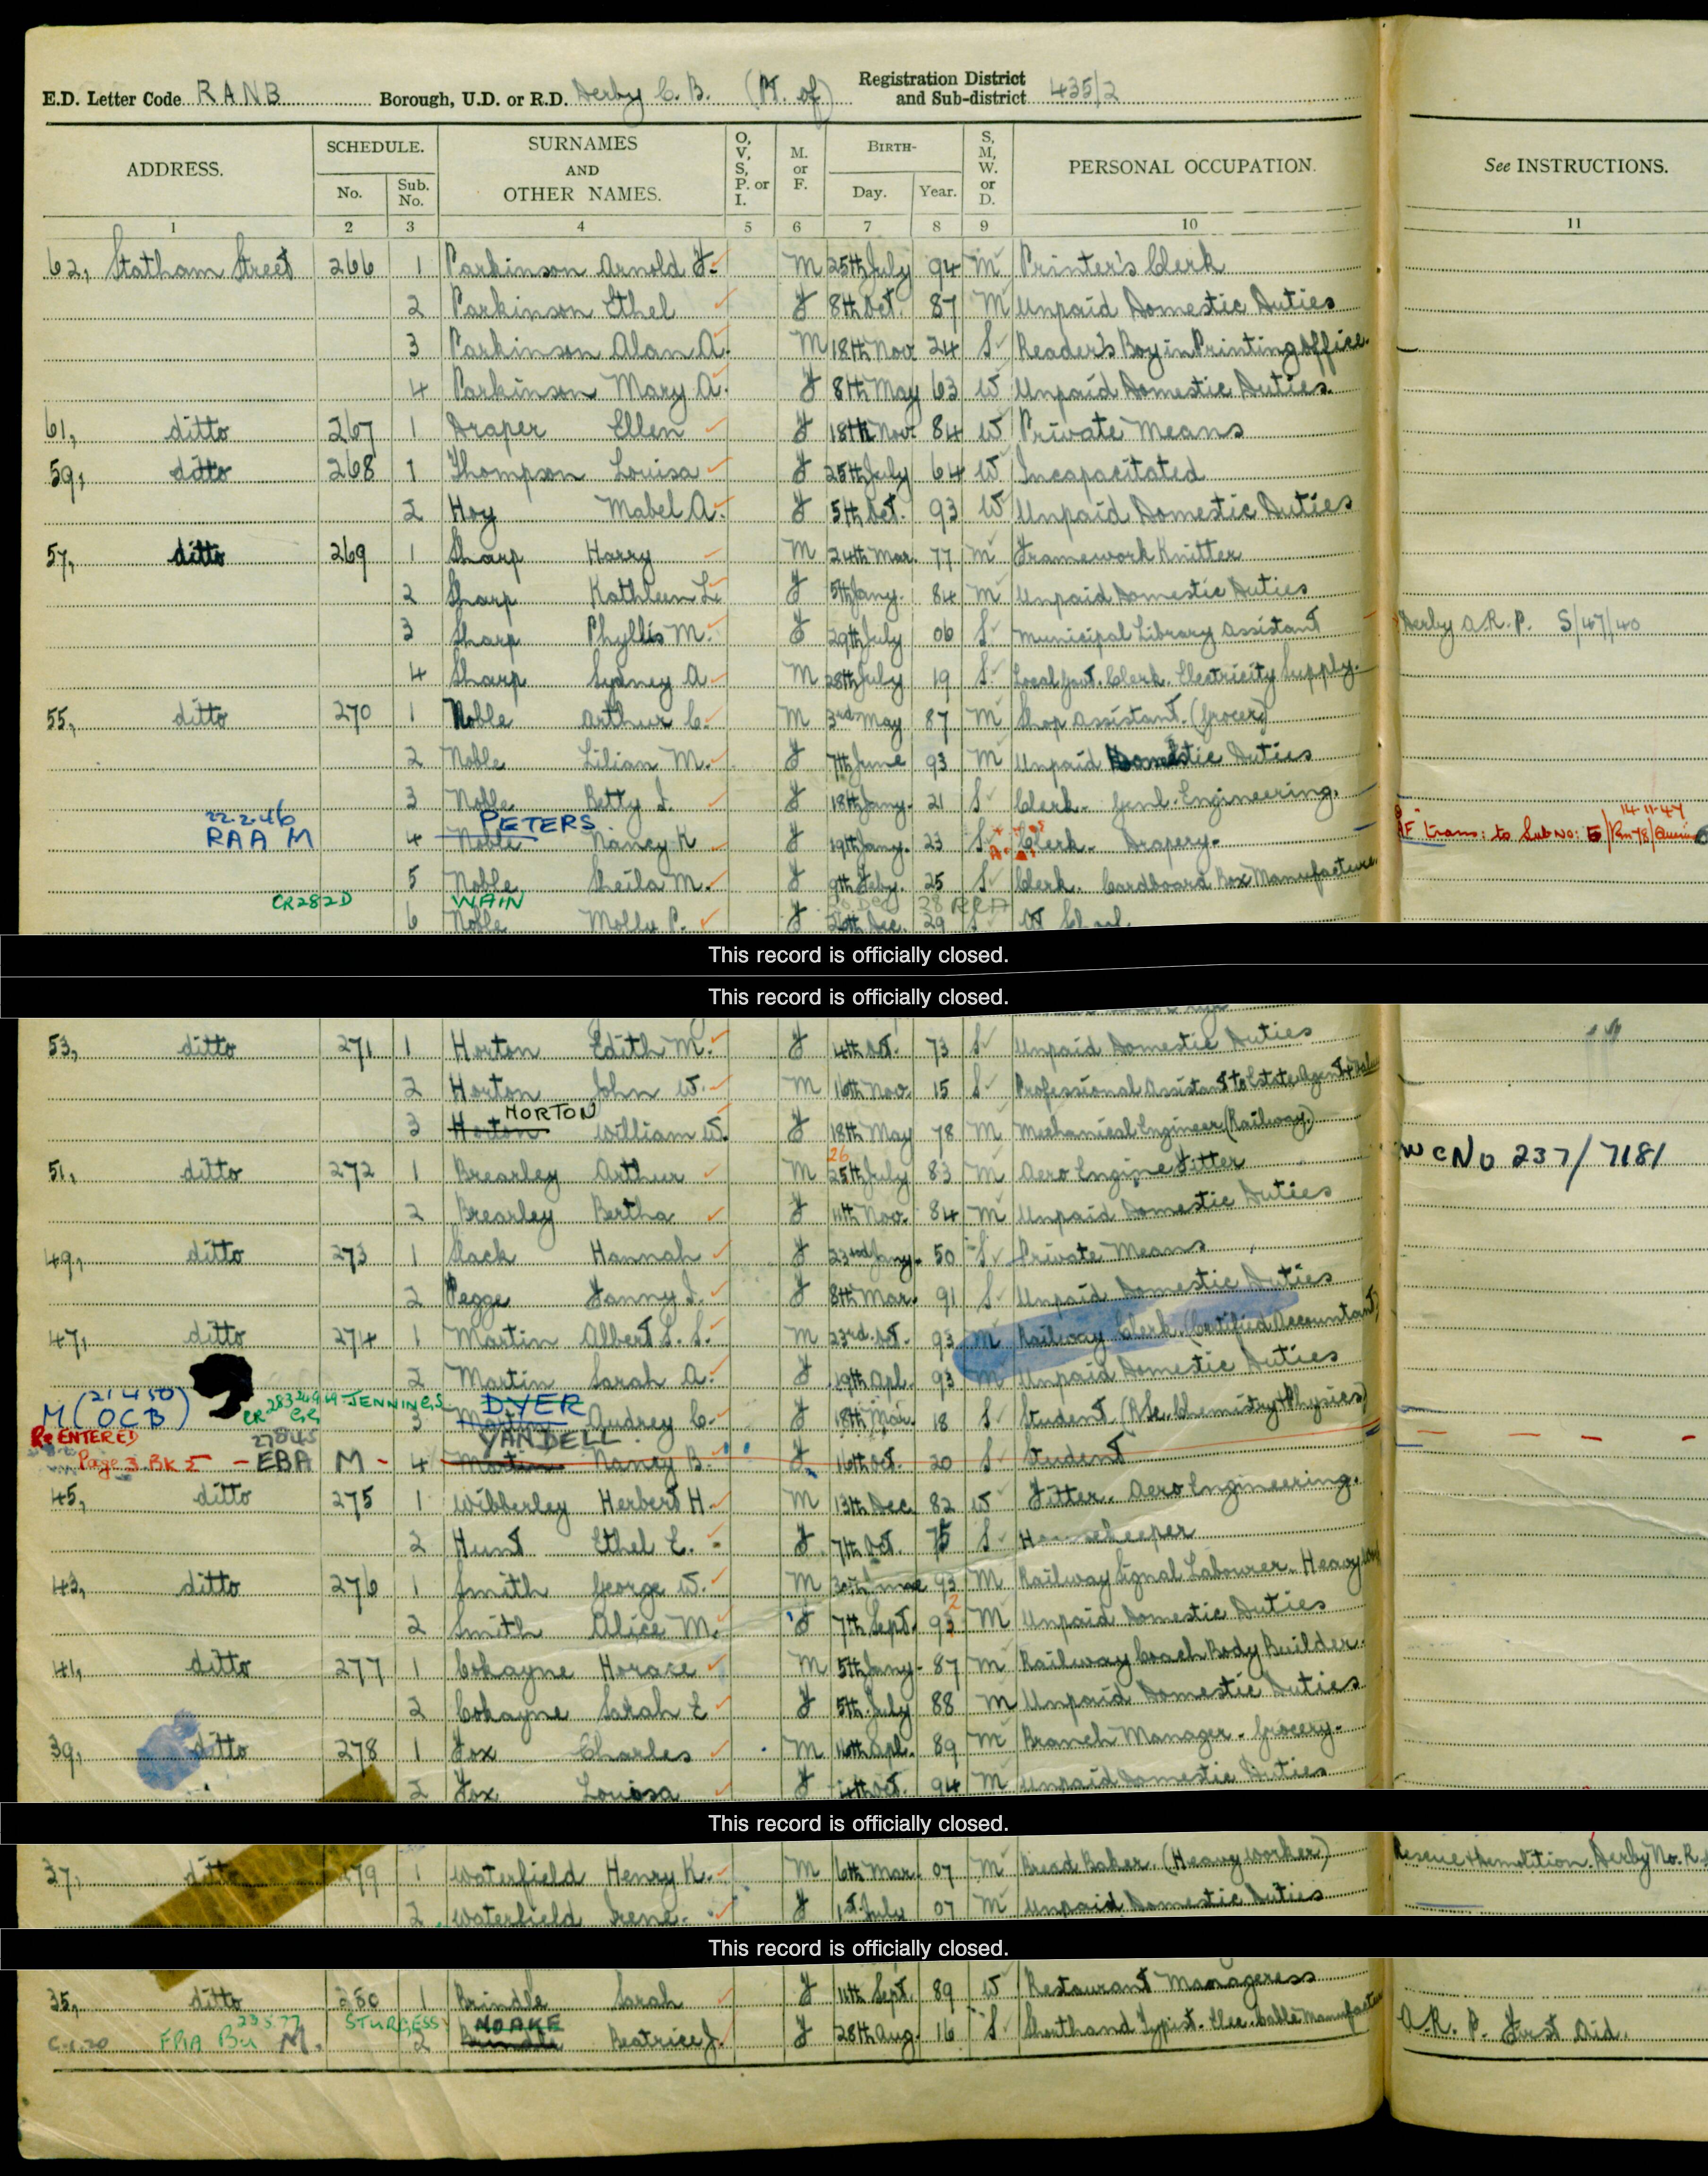 E.D. Letter Code RANB Borough, U.D. or R.D. Derby C.B. (Pt. of) Registration District and Sub-district 435/2
ADDRESS. SCHEDULE. No. Sub. No. SURNAMES AND OTHER NAMES. O, V, S, P. or I. M. or F. BIRTH- Day. Year. S, M, W. or D. PERSONAL OCCUPATION. See INSTRUCTIONS.
1 2 3 4 5 6 7 8 9 10 11
62, Statham Street 266 1 Parkinson Arnold F. M 25th July 94 M Printer's Clerk
2 Parkinson Ethel F 8th Oct. 87 M Unpaid Domestic Duties
3 Parkinson Alan A. M 18th Nov 24 S Reader's Boy in Printing Office.
4 Parkinson Mary A. F 8th May 63 W Unpaid Domestic Duties.
61, ditto 267 1 Draper Ellen F 18th Nov. 84 W Private Means
59, ditto 268 1 Thompson Louisa F 25th July 64 W Incapacitated
2 Hoy Mabel A. F 5th Oct. 93 W Unpaid Domestic Duties
57, ditto 269 1 Sharp Harry M 24th Mar. 77 M Framework Knitter
2 Sharp Kathleen L. F 5th Jany. 84 M Unpaid Domestic Duties
3 Sharp Phyllis M. F 29th July 06 S. Municipal Library Assistant Derby A.R.P. S/47/40
4 Sharp Sydney A. M 28th July 19 S. Local Govt. Clerk. Electricity Supply.
55, ditto 270 1 Noble Arthur C. M 3rd May 87 M Shop Assistant. (Grocer)
2 Noble Lilian M. F 7th June 93 M Unpaid Domestic Duties
3 Noble Betty J. F 18th Jany. 21 S Clerk. Genl. Engineering.
22.2.46 PETERS 14.11.47
RAA M 4 Noble Nancy K F 19th Jany. 23 S Clerk. Drapery. trans: to Sub No: 5
5 Noble Sheila M. F 9th Feby. 25 S Clerk. Cardboard Box Manufacture
CR282D WAIN 28 RRA
6 Noble Molly P. F 26th Dec. 29 S At School.
This record is officially closed.
This record is officially closed.
53, ditto 271 1 Horton Edith M. F 4th Oct. 73 S Unpaid Domestic Duties
2 Horton John W. M 16th Nov. 15 S Professional Assistant to Estate Agent
HORTON
3 Horton William W. F 18th May 78 M Mechanical Engineer (Railway.)
26
51, ditto 272 1 Brearley Arthur M 25th July 83 M Aero Engine Fitter WCNO 237/7181
2 Brearley Bertha F 11th Nov. 84 M Unpaid Domestic Duties
49, ditto 273 1 Slack Hannah F 23rd Jany. 50 S Private Means
2 Pegge Fanny J. F 8th Mar. 91 S Unpaid Domestic Duties
47, ditto 274 1 Martin Albert L. S. M 23rd Oct. 93 M Railway Clerk. (Certified Accountant)
2 Martin Sarah A. F 19th Apl. 93 M Unpaid Domestic Duties
M (21450) (OCB) CR JENNINGS DYER
3 Martin Audrey C. F 18th Mar. 18 S Student (B.Sc. Chemistry & Physics)
Re ENTERED 27845 YANDELL
Page 3. BK 5 - EBA M - 4 Martin Nancy B. F 16th Oct. 20 S Student
45, ditto 275 1 Wibberley Herbert H. M 13th Dec 82 W Fitter. Aero Engineering.
2 Hunt Ethel E. F 7th Oct. 75 S Housekeeper
43, ditto 276 1 Smith George W. M 30th June 93 M Railway Signal Labourer. Heavy
2
2 Smith Alice M. F 7th Sept. 93 M Unpaid Domestic Duties
41, ditto 277 1 Cokayne Horace M 5th Jany. 87 M Railway Coach Body Builder.
2 Cokayne Sarah E F 5th July 88 M Unpaid Domestic Duties
39, ditto 278 1 Fox Charles M 16th Apl. 89 M Branch Manager. Grocery.
2 Fox Louisa F 14th Oct. 94 M Unpaid Domestic Duties
This record is officially closed.
37, ditto 279 1 Waterfield Henry K. M 6th Mar. 07 M Bread Baker. (Heavy Worker) Rescue & Demolition. Derby No.
2 Waterfield Irene. F 1st July 07 M Unpaid Domestic Duties
This record is officially closed.
35, ditto 280 1 Brindle Sarah F 11th Sept. 89 W Restaurant Manageress
23.5.77 STURGESS NOAKE
C.1.20 FRA Bu M. 2 Brindle Beatrice J. F 28th Aug. 16 S Shorthand Typist. Elec. Cable Manufacture A.R.P. First Aid.